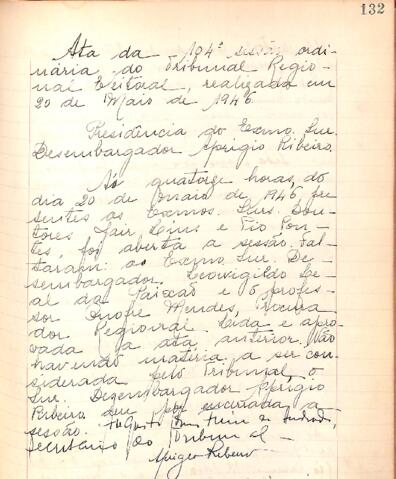 132
Ata da 184ª sessão ordi-
nária do Tribunal Regio-
nal Eleitoral, realizada em
20 de Maio de 1946
Presidência do Exmo. Snr.
Desembargador Aprigio Ribeiro.
Ás quatorze horas, do
dia 20 de maio de 1946 pre
sentes os Exmos. Snrs. Dou-
tores Jair Lins e Pio Pon-
tes, foi aberta a sessão. Fal-
taram: o Exmo Snr. De-
sembargador Leovigildo Le-
al da Paixão e o profes-
sor Onofre Mendes, Procura
dor Regional. Lida e apro-
vada a ata anterior. Não
havendo matéria a ser con-
siderada pelo Tribunal, o
Snr. Desembargador Aprigio
Ribeiro deu por encerrada a
sessão.
secretario do Tribunal —
Aprigio Ribeiro —